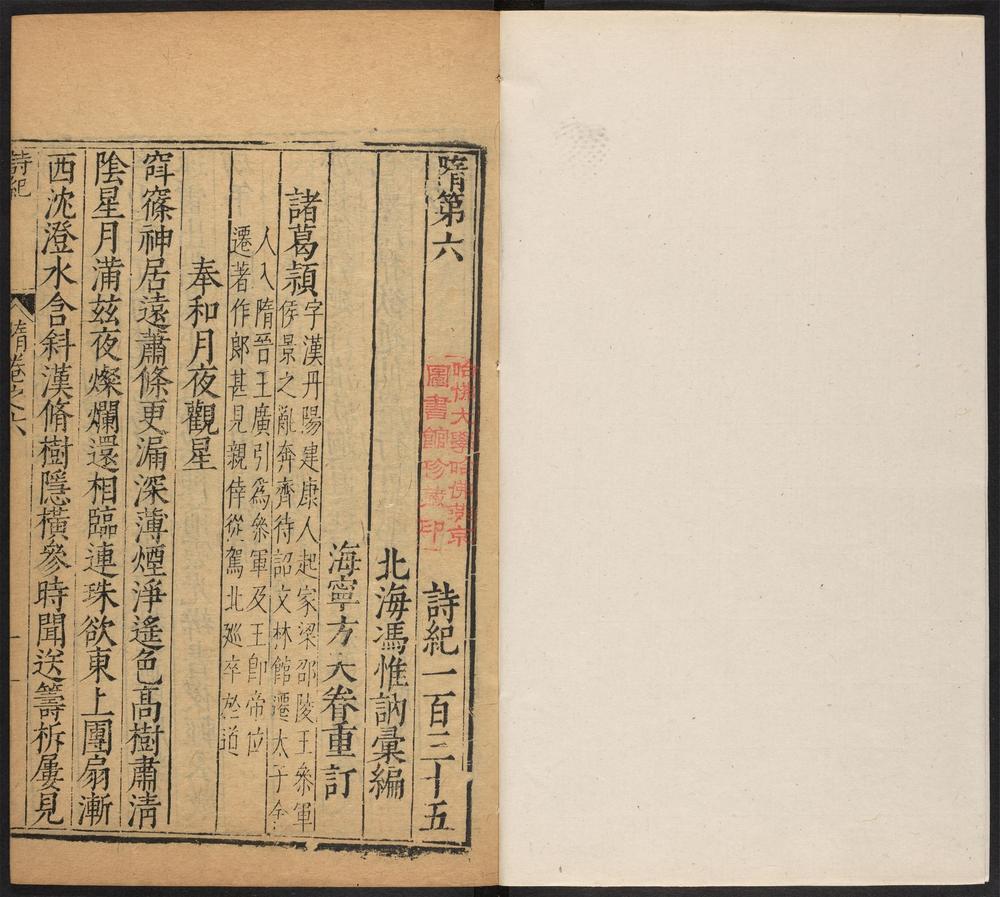 隋第六 詩紀一百三十五
北海馮惟訥彙編
海寧方天眷重訂
諸葛潁 字漢丹陽建康人起家梁邵陵王叅軍
侯景之亂奔齊待詔文林館遷太子舍
人入隋晉王廣引爲叅軍及王卽帝位
遷著作郎甚見親倖從駕北廵卒於道
奉和月夜觀星
窅篠神居遠蕭條更漏深薄煙淨遙色高樹肅清
陰星月滿兹夜燦爛還相臨連珠欲東上團扇漸
西沈澄水含斜漢脩樹隱橫參時聞送籌柝屢見
詩紀 隋卷之六 一
哈佛大學哈佛燕京
圖書館珍藏印